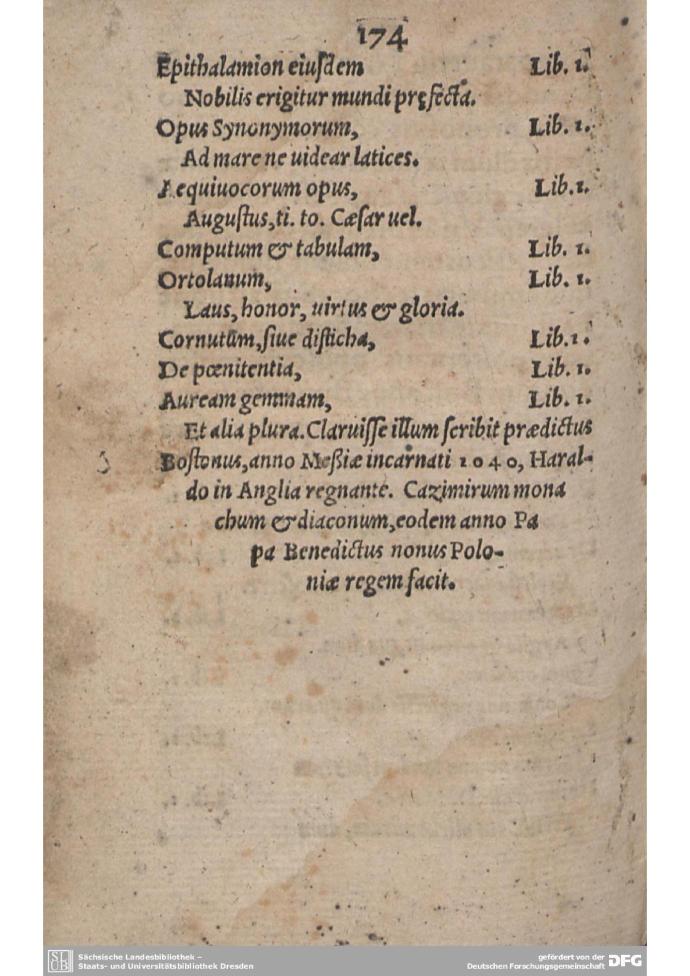 174
Epithalamion eiuſdem Lib. 1.
Nobilis erigitur mundi pręfecta.
Opus Synonymorum, Lib. 1.
Ad mare ne uidear latices.
Aequiuocorum opus, Lib. 1.
Auguſtus, ti. to. Cæſar uel.
Computum & tabulam, Lib. 1.
Ortolanum, Lib. 1.
Laus, honor, uirtus & gloria.
Cornutūm, ſiue diſticha, Lib. 1.
De pœnitentia, Lib. 1.
Auream gemmam, Lib. 1.
Et alia plura. Claruiſſe illum ſcribit prædictus
Boſtonus, anno Meßiæ incarnati 1040, Haral-
do in Anglia regnante. Cazimirum mona
chum & diaconum, eodem anno Pa
pa Benedictus nonus Polo-
niæ regem facit.
SLUB
Sächsische Landesbibliothek –
Staats- und Universitätsbibliothek Dresden
gefördert von der
Deutschen Forschungsgemeinschaft DFG